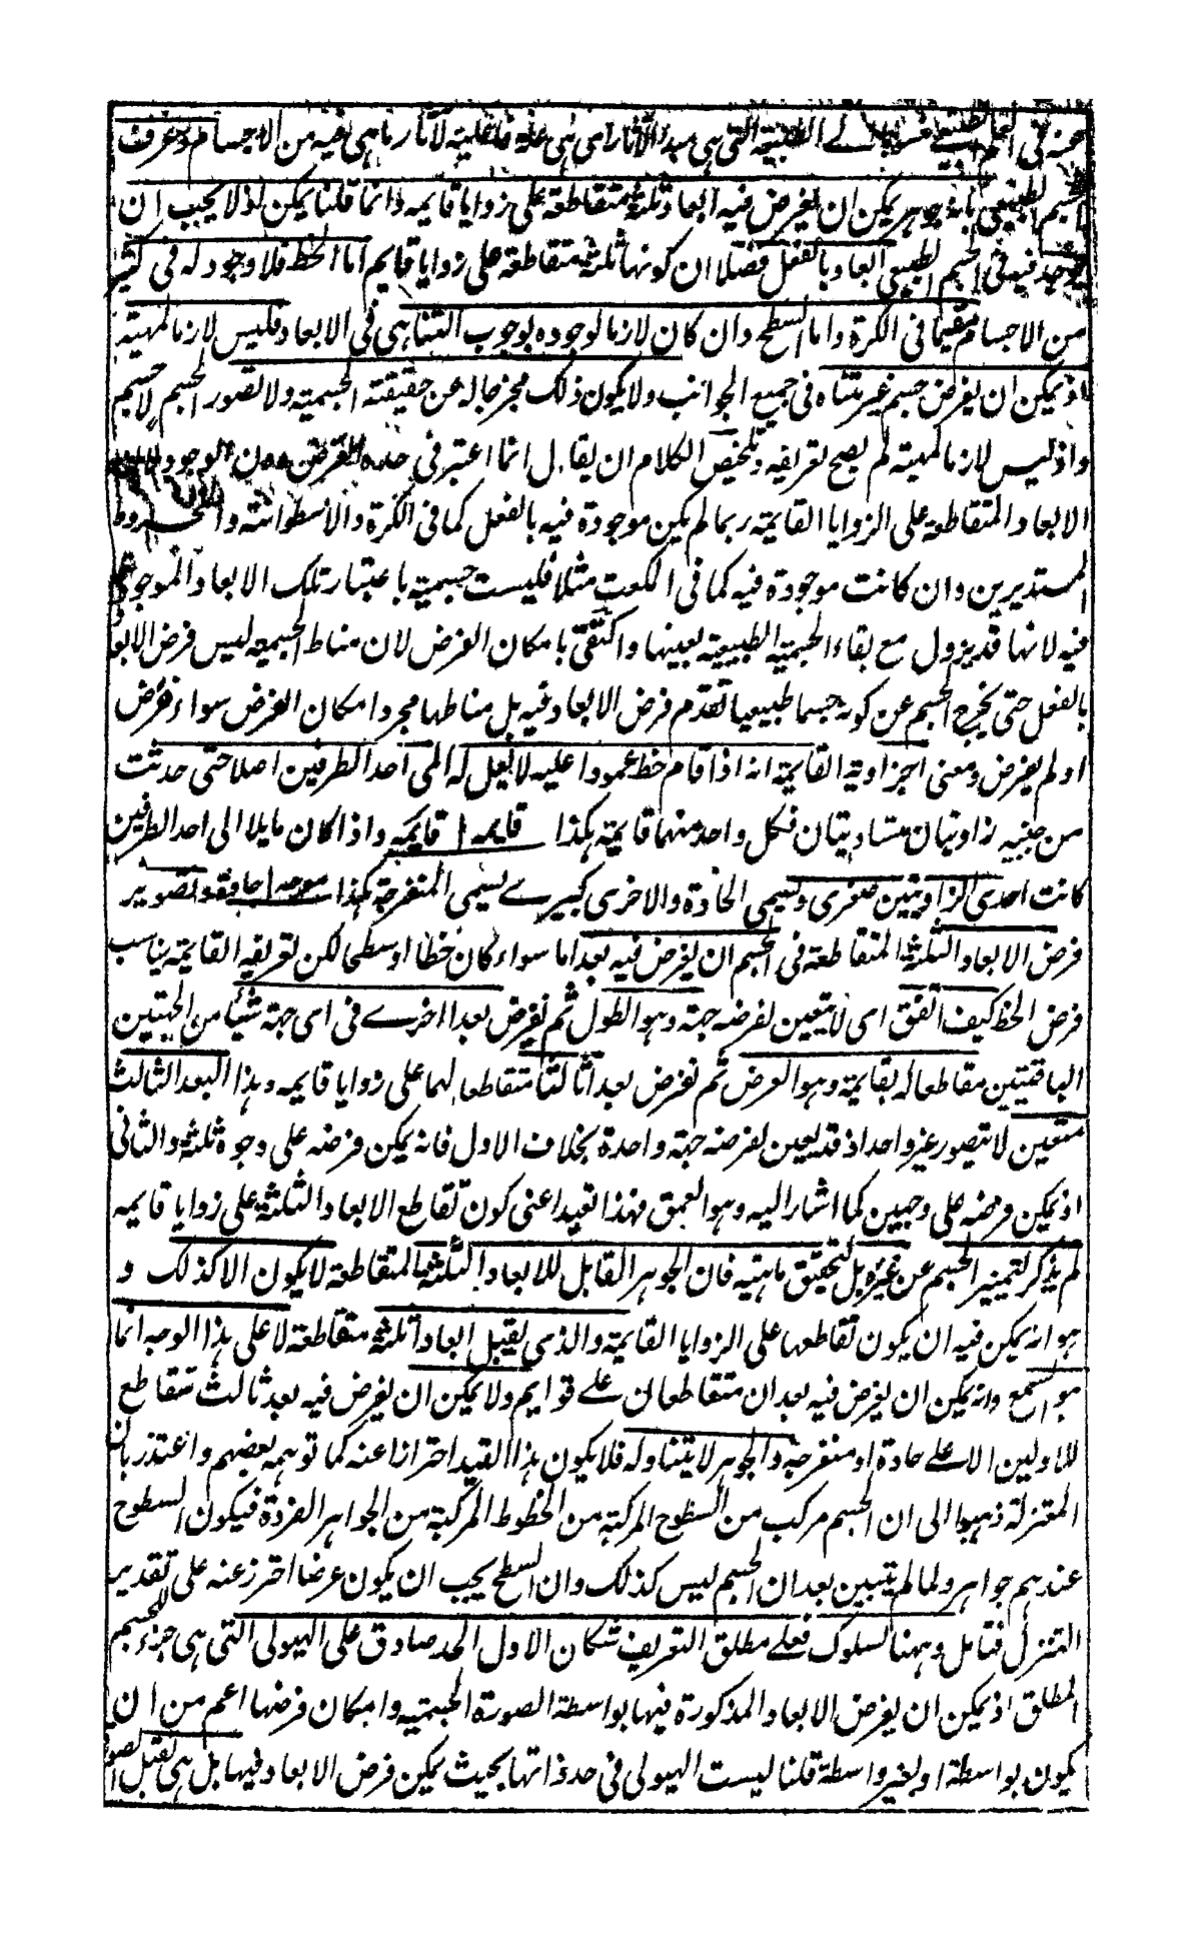 عنه فى العلم الطبيعى منسوبا الى الطبيعة التى هى مبدا الآثار اى هى علة فاعلية لآثار ما هى فيه من الاجسام وعرف
الجسم الطبيعى بانه جوهر يمكن ان يفرض فيه ابعاد ثلثة متقاطعة على زوايا قايمه وانما قلنا يمكن اذ لا يجب ان
يوجد فيه فى الجسم الطبيعى ابعاد بالفعل فضلا ان كونها ثلثة متقاطعة على زوايا قايم اما الخط فلا وجود له فى كثير
من الاجسام سيما فى الكرة واما السطح وان كان لازما لوجوده بوجوب التناهى فى الابعاد فليس لازما لمهيته
اذ يمكن ان يفرض جسم غير متناه فى جميع الجوانب ولا يكون ذلك مخرجا له عن حقيقته الجسميه ولا تصور الجسم لا جسم
واذ ليس لازما لمهيته لم يصح تعريفه وتلخيص الكلام ان يقال انما اعتبر فى حده الفرض دون الوجود
الابعاد المتقاطعة على الزوايا القايمة ربما لم يكن موجودة فيه بالفعل كما فى الكرة والاسطوانة والمخروط
المستديرين وان كانت موجودة فيه كما فى المكعب مثلا فليست جسميه باعتبار تلك الابعاد الموجودة
فيه لانها قد يزول مع بقاء الجسميه الطبيعيه بعينها واكتفى بامكان الفرض لان مناط الجسميه ليس فرض الابعاد
بالفعل حتى يخرج الجسم عن كونه جسما طبيعيا لعدم فرض الابعاد فيه بل مناطها مجرد امكان الفرض سواء فرض
او لم يفرض ومعنى الزاوية القايمة انه اذا قام خط عمودا على خط لا ميل له الى احد الطرفين اصلا حتى حدثت
من جنبيه زاويتان متساويتان فكل واحد منهما قايمة هكذا قايمه | قايمه واذا كان مايلا الى احد الطرفين
كانت احدى الزاويتين صغرى وتسمى الحادة والاخرى كبيرے تسمى المنفرجة هكذا منفرجه | حاده وتصوير
فرض الابعاد الثلثة المتقاطعة فى الجسم ان يفرض فيه بعد اما سواء كان خطا او سطحا لكن تعريفه القايمة يناسب
فرض الخط كيف اتفق اى لا يتعين لفرضه جهة وهو الطول ثم يفرض بعد اخرے فى اى جهة شيئا من الجهتين
الباقيتين مقاطعا له بقايمة وهو العرض ثم نفرض بعدا ثالثا متقاطعا لهما على زوايا قايمه وهذا البعد الثالث
متعين لا يتصور غير واحد اذ قد يعين لفرضه جهة واحدة بخلاف الاول فانه يمكن فرضه على وجوه ثلثة والثانى
اذ يمكن فرضه على وجهين كما اشار اليه وهو العمق فهذا القيد اعنى كون تقاطع الابعاد الثلثة على زوايا قايمه
لم يذكر لتمييز الجسم عن غيره بل لتحقيق ماهيته فان الجوهر القابل للابعاد الثلثة المتقاطعة لا يكون الا كذلك و
هو انه يمكن فيه ان يكون تقاطعها على الزوايا القايمة والذى يقبل ابعادا ثلثة متقاطعة لا على هذا الوجه انما
هو السطح وانه يمكن ان يفرض فيه بعدان متقاطعان علے قوايم ولا يمكن ان يفرض فيه بعد ثالث متقاطع
للاولين الا علے حادة او منفرجة والجوهر لا يتناوله فلا يكون هذا القيد احترازا عنه كما توهمه بعضهم واعتذر بان
المعتزلة ذهبوا الى ان الجسم مركب من السطوح المركبة من الخطوط المركبة من الجواهر الفردة فيكون السطوح
عندهم جواهر ولما لم يتبين بعد ان الجسم ليس كذلك وان السطح يجب ان يكون عرضا احترز عنه على تقدير
التنزل فتامل وههنا سلوك فعلے مطلق التعريف شكان الاول الحد صادق على الهيولى التى هى جزء للجسم
المطلق اذ يمكن ان يفرض الابعاد المذكورة فيها بواسطة الصورة الجسميه وامكان فرضها اعم من ان
يكون بواسطة او بغير واسطة قلنا ليست الهيولى فى حد ذاتها بحيث يمكن فرض الابعاد فيها بل هى تقبل الصور